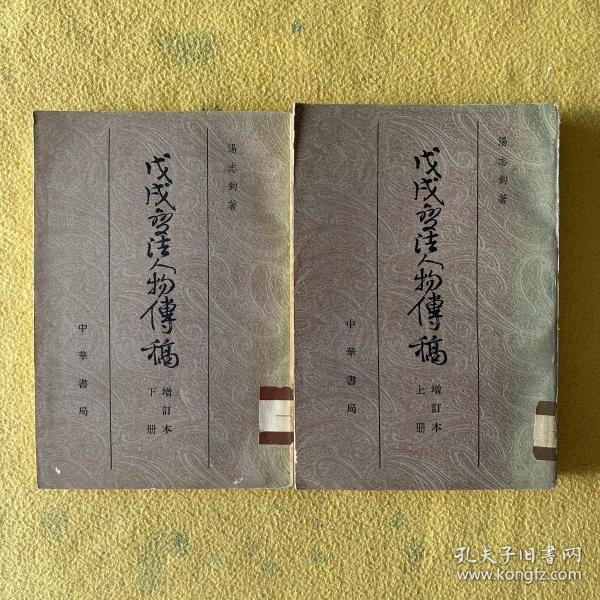 湯志鈞著
戊戌變法人物傳稿
增訂本
下册
中華書局
湯志鈞著
戊戌變法人物傳稿
增訂本
上册
中華書局
孔夫子旧书网
www.kongfz.com